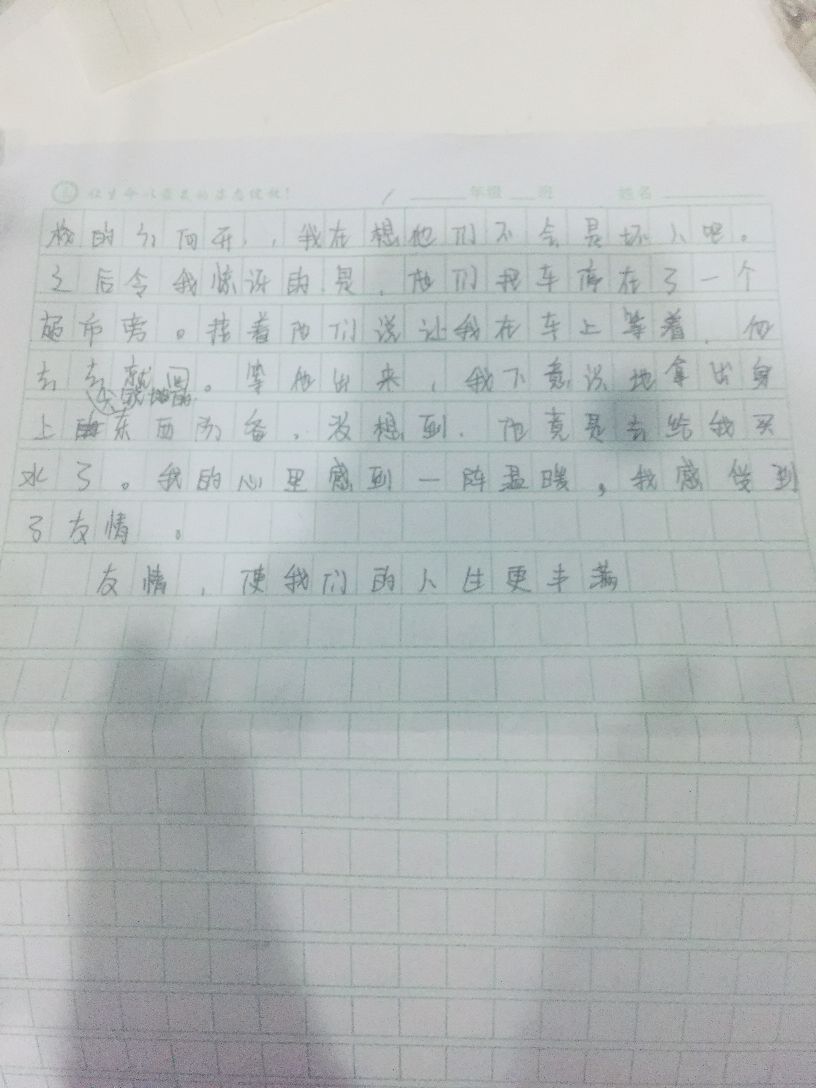 让生命以最美的姿态绽放! 年级 班 姓名
的方向开,我在想他们不会是坏人吧。
之后令我惊讶的是,他们把车停在了一个
超市旁。接着他们说让我在车上等着,他
去去就回。等他出来,我下意识地拿出身
上的东西防备,没想到,他竟是去给我买
水了。我的心里感到一阵温暖,我感受到
了友情。
友情,使我们的人生更丰满